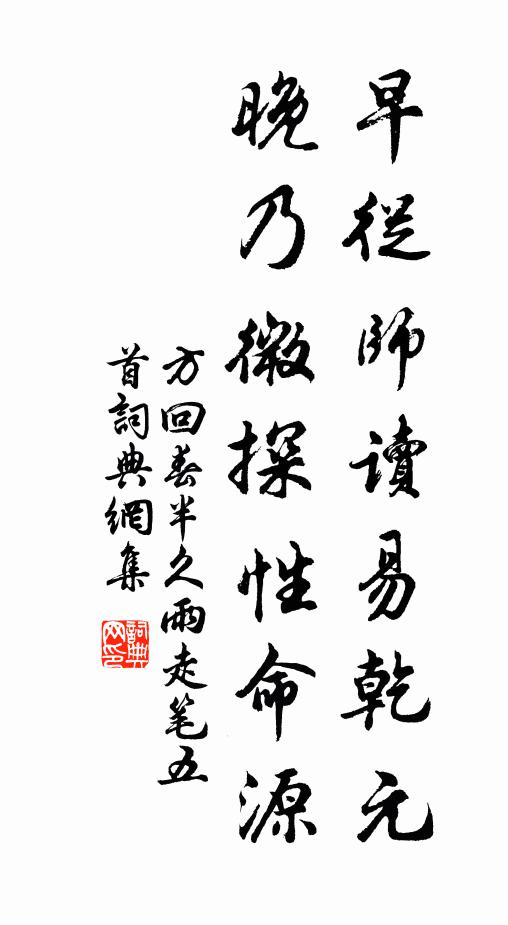 早從師讀易乾元
晚乃微探性命源
方回春半久雨走笔五
首詞典網集
詞典
网印